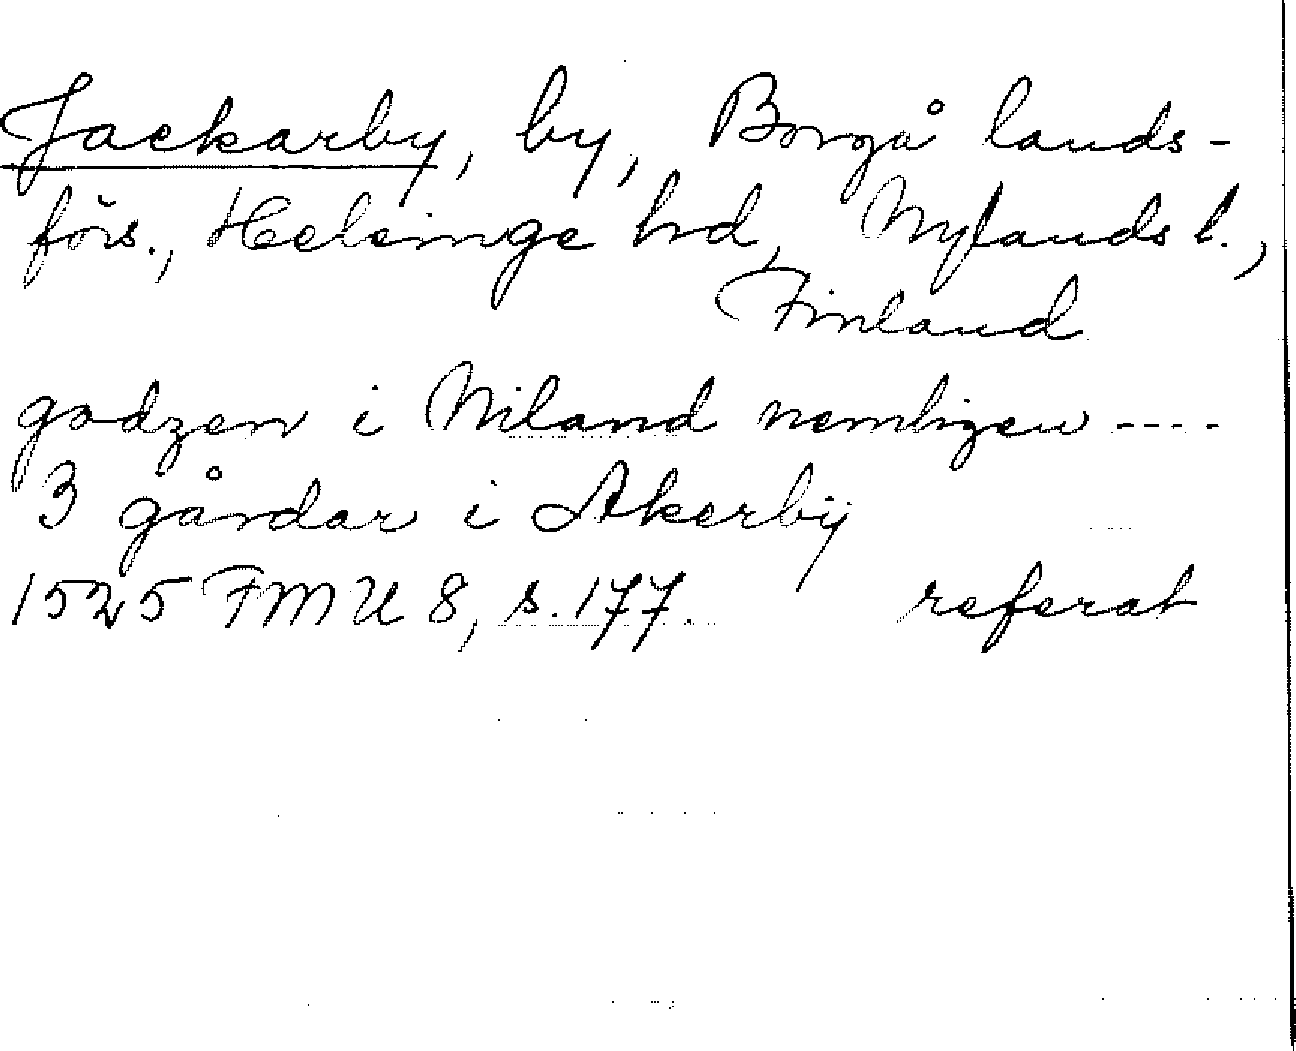 Jackarby, by, Borgå lands-
förs., Helsinge hd, Nylands l.,
Finland
godzen i Niland nemligen ----
3 gårdar i Akerbÿ
1525 FMU 8, s. 177. referat